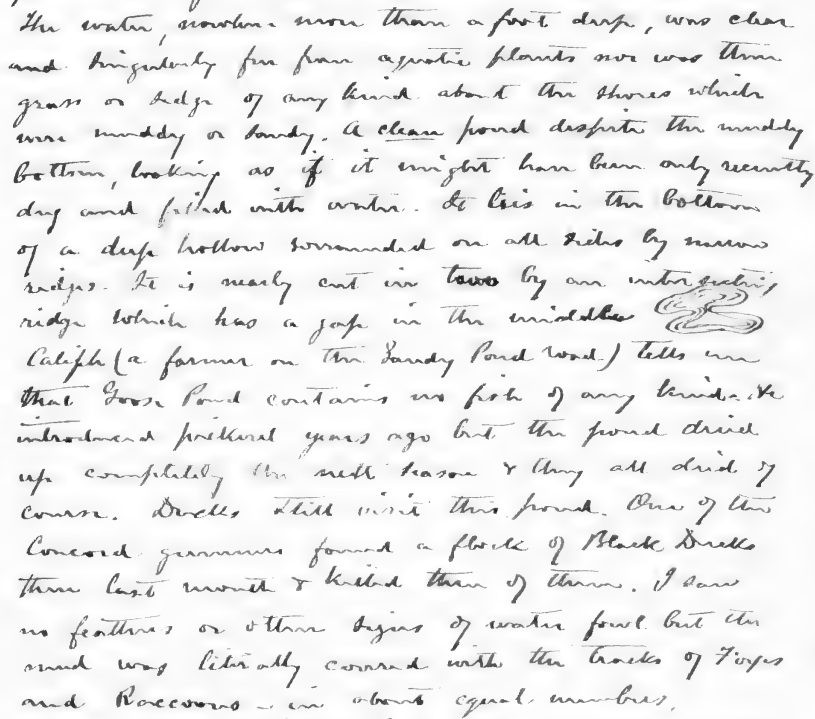 The water, nowhere more than a foot deep, was clear
and singularly free from aquatic plants nor was there
grass or sedge of any kind about the shores which
were muddy or sandy. A clean pond despite the muddy
bottom, looking as if it might have been only recently
dug and filled with water. It lies in the bottom
of a deep hollow surrounded on all sides by narrow
ridges. It is nearly cut in two by an intersecting
ridge which has a gap in the middle
Caliph (a farmer on the Sandy Pond road.) tells me
that Goose Pond contains no fish of any kind. He
introduced pickerel years ago but the pond dried
up completely the next season & they all died of
course. Ducks still visit this pond. One of the
Concord gunners found a flock of Black Ducks
there last month & killed three of them. I saw
no feathers or other signs of water fowl but the
mud was literally covered with the tracks of Foxes
and Raccoons – in about equal numbers.